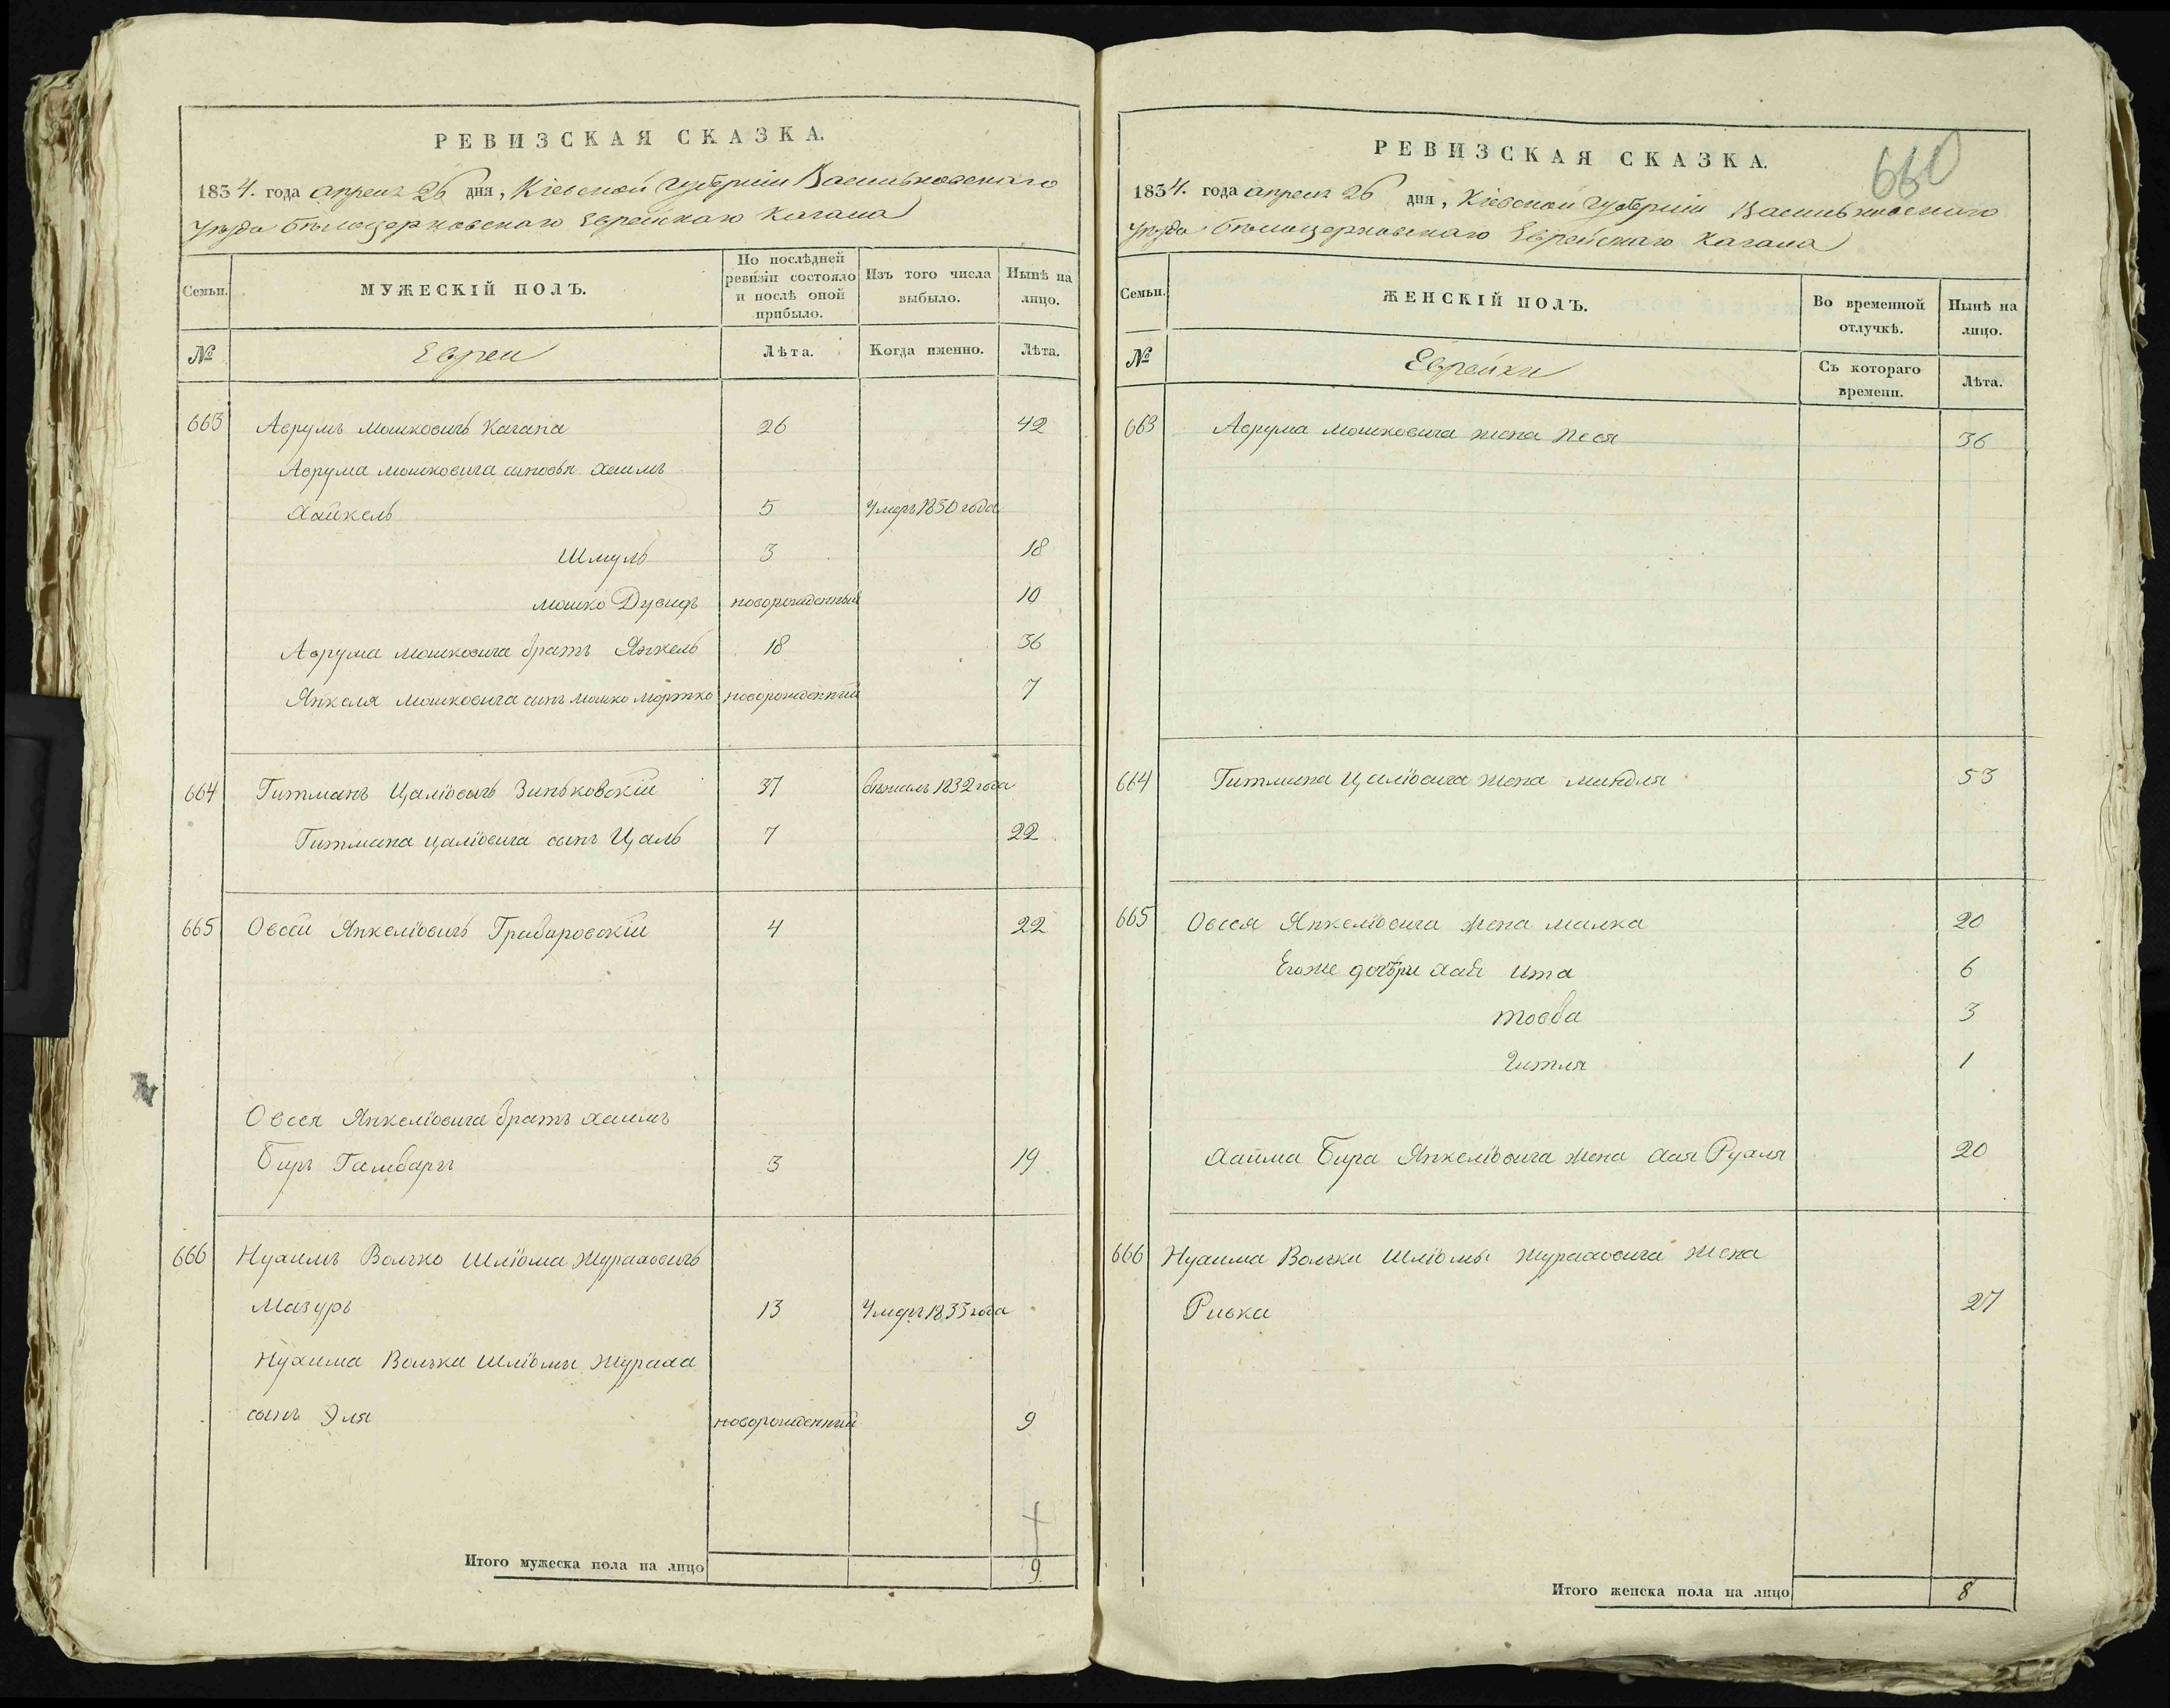 РЕВИЗСКАЯ СКАЗКА.
1834. года апреля 26 дня, Кіевской Губерніи Васильковскаго
уезда белоцерковскаго Еврейскаго кагала
Семьи.
МУЖЕСКІЙ ПОЛЪ.
По послѣдней ревизіи состояло и послѣ оной прибыло.
Изъ того числа выбыло.
Нынѣ на лицо.
№
Евреи
Лѣта.
Когда именно.
Лѣта.
663 Аврумъ Мошковичъ Кагана 26 42
Аврума Мошковича сыновья Хаимъ
Хайкель 5 Умеръ 1830 года
Шмуль 3 18
Мошко Дувидъ новорожденный 10
Аврума Мошковича братъ Янкель 18 36
Янкеля Мошковича сынъ Мошко Мортко новорожденный 7
664 Гитманъ Цаліовичъ Зиньковскій 37 бежалъ 1832 года
Гитмана Цаліовича сынъ Цаль 7 22
665 Овсей Янкеліовичъ Грабаровскій 4 22
Овсея Янкеліовича братъ Хаимъ
Биръ Гимбаргъ 3 19
666 Нухимъ Волько Шліома Журахович
Мазуръ 13 Умеръ 1833 года
Нухима Вольки Шліомы Жураха
сынъ Эля новорожденный 9
Итого мужеска пола на лицо 9
660
РЕВИЗСКАЯ СКАЗКА.
1834. года апреля 26 дня, Кіевской Губерніи Васильковскаго
уезда белоцерковскаго Еврейскаго кагала
Семьи.
ЖЕНСКІЙ ПОЛЪ.
Во временной отлучкѣ.
Нынѣ на лицо.
№
Еврейки
Съ котораго времени.
Лѣта.
663 Аврума Мошковича жена Песя 36
664 Гитмана Цаліовича жена Миндля 53
665 Овсея Янкеліовича жена Малка 20
Егоже дочери Хая Ита 6
Товба 3
Гитля 1
Хаима Бира Янкеліовича жена Хая Рухля 20
666 Нухима Вольки Шліомы Жураховича жена
Ривка 27
Итого женска пола на лицо 8